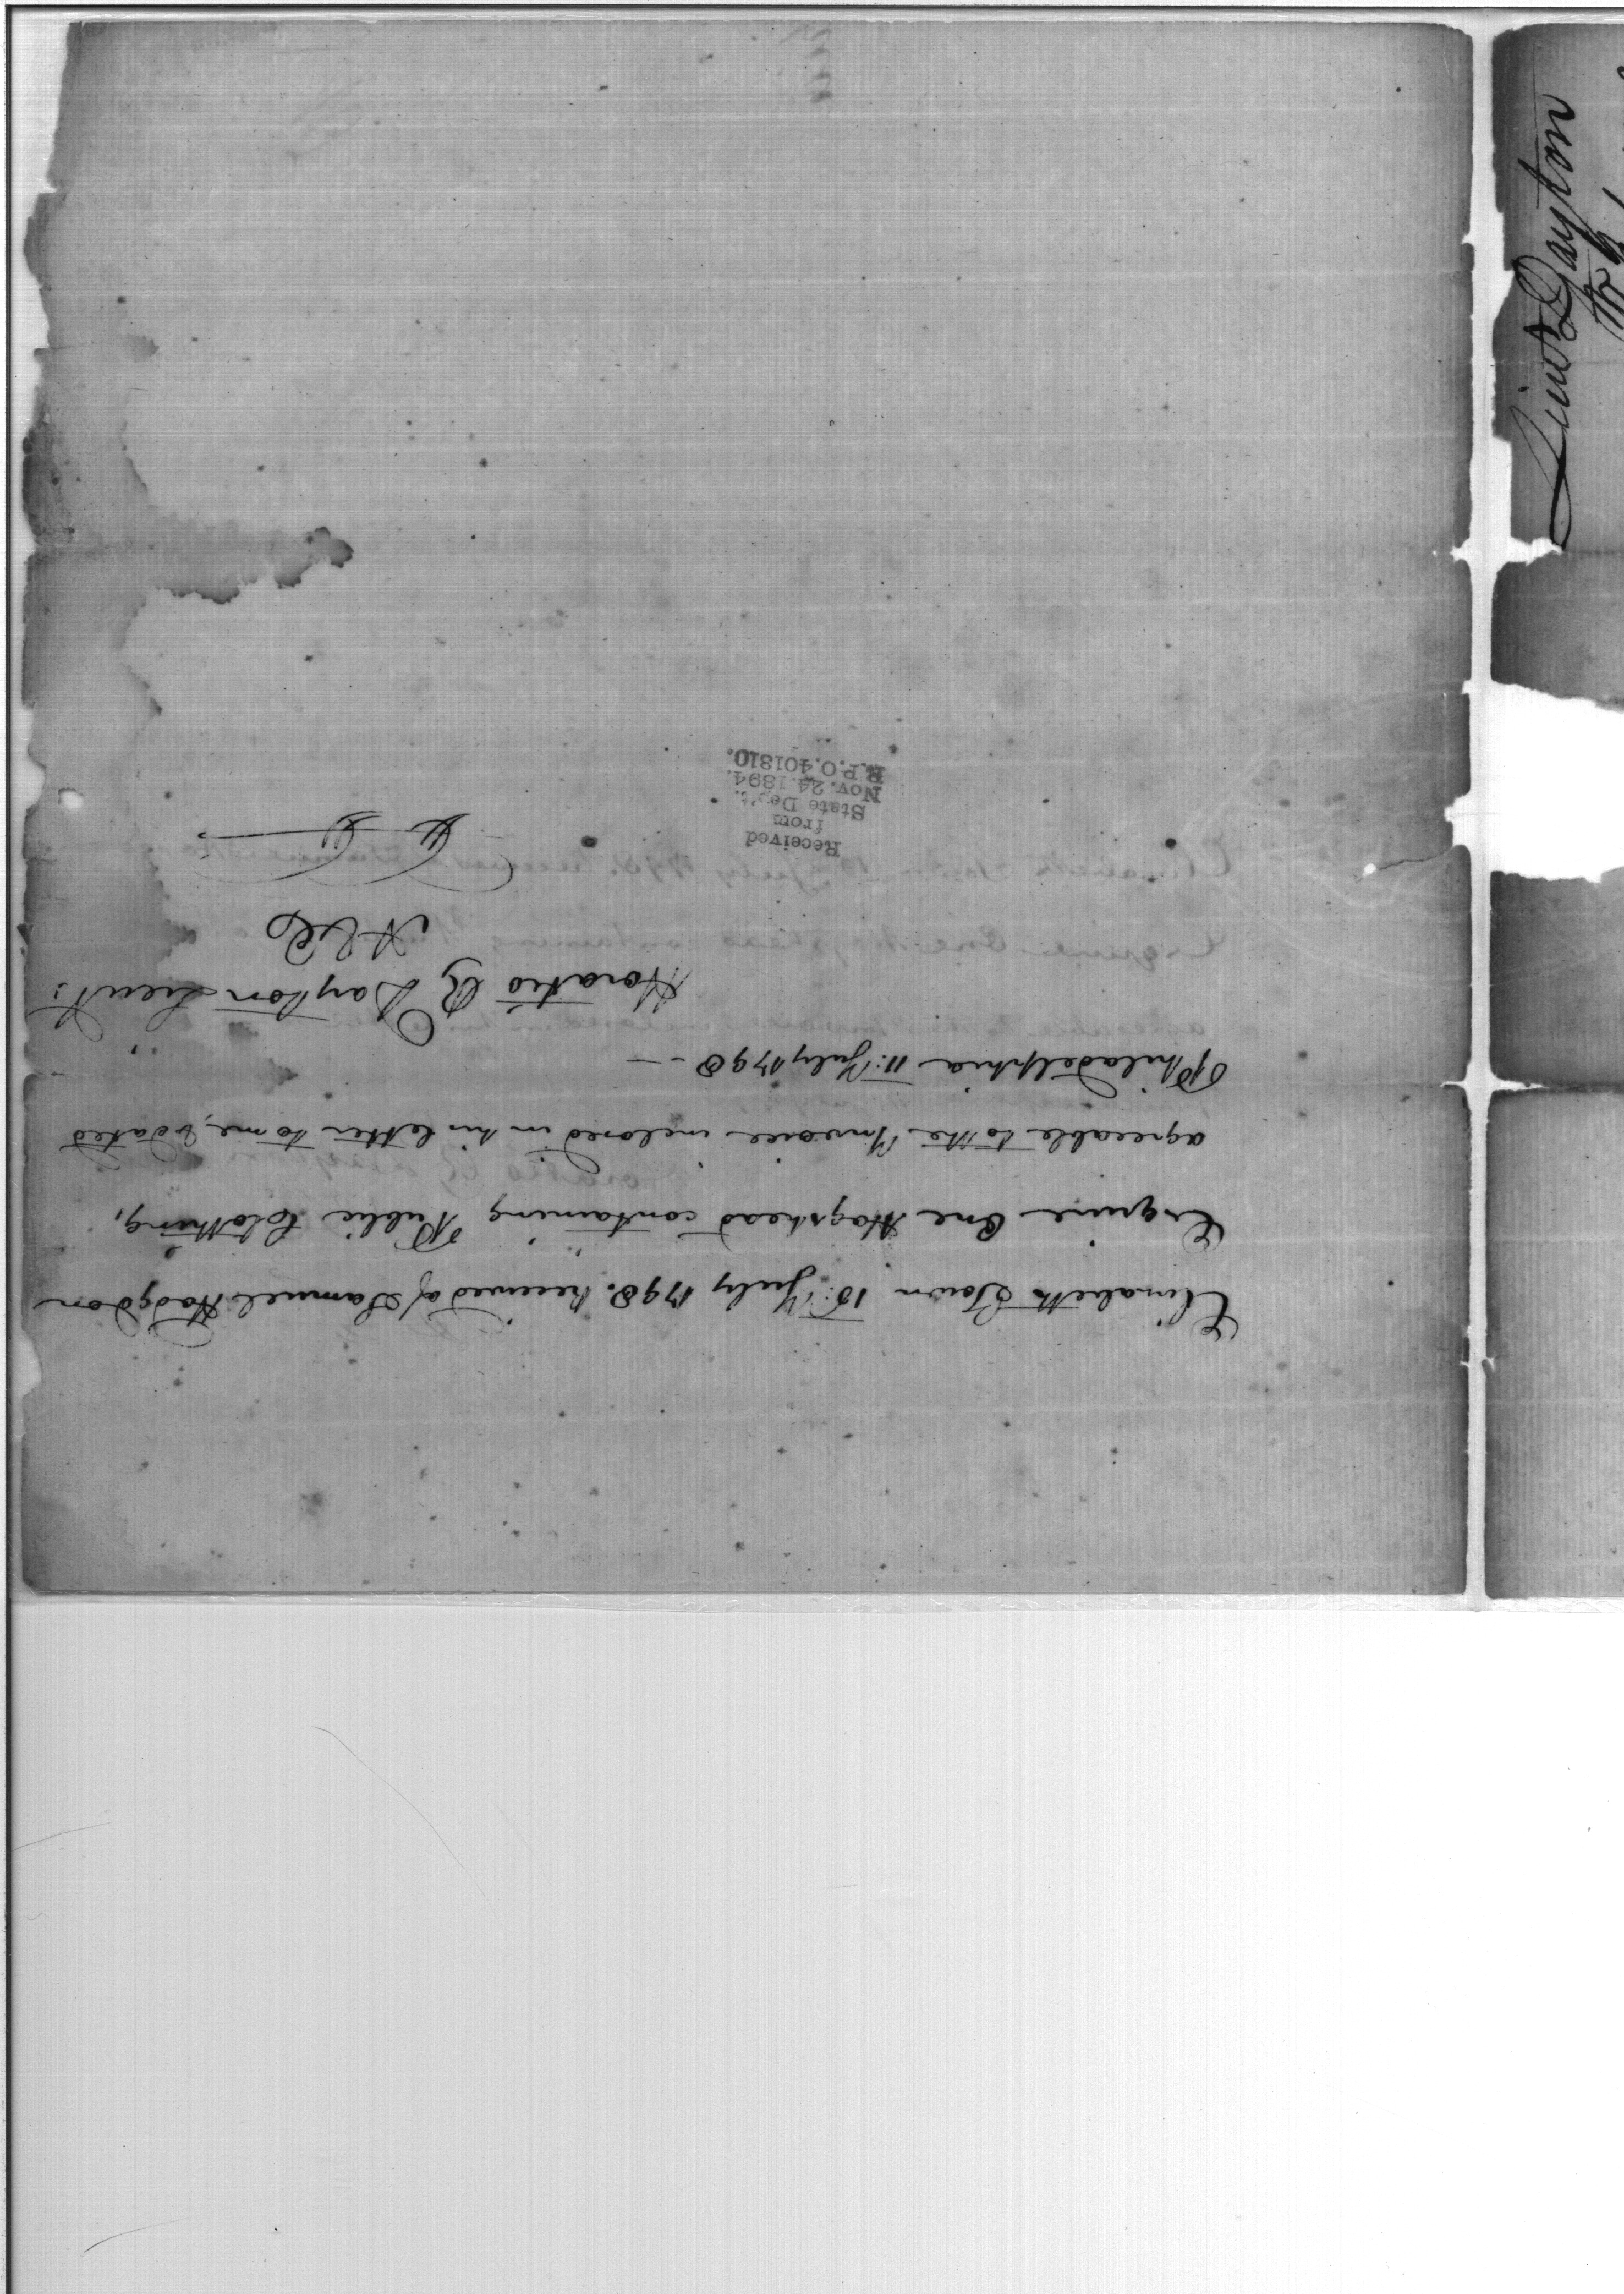 Elizabeth Town 15: July 1798. Received of Samuel Hodgdon
Esquire One Hogshead containing Public Clothing,
agreeable to the Invoice inclosed in his letter to me, dated
Philadelphia 11: July 1798 --
Horatio R Dayton Lieut:
Received
from
State Dep't.
Nov. 24, 1894.
R.P.O. 401810.
Lieut Dayton